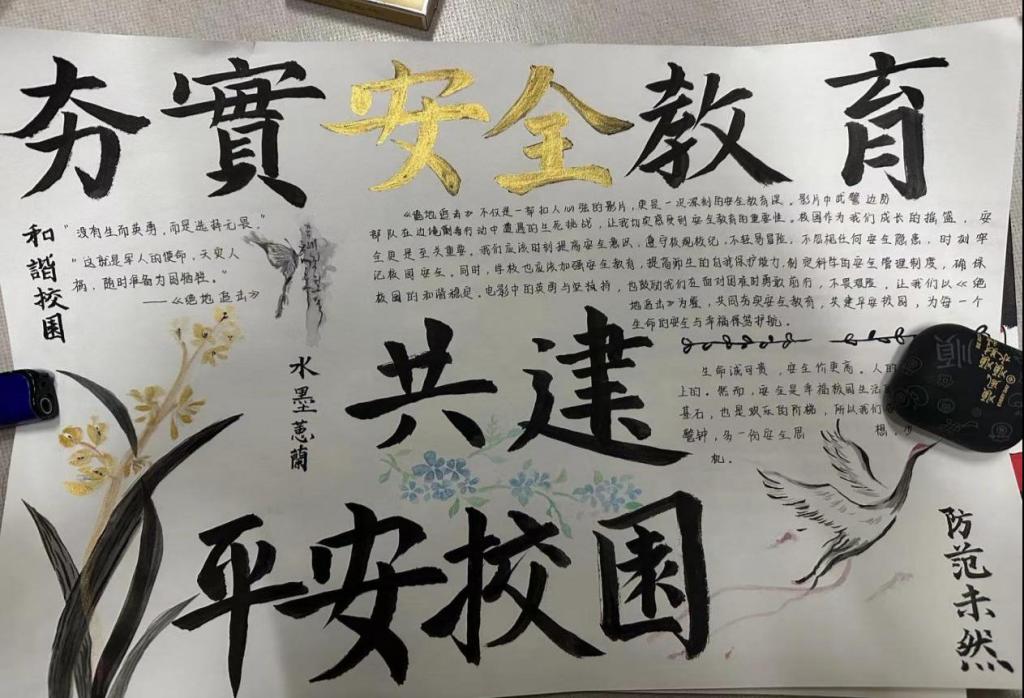 夯實安全教育
和諧校園
"没有生而英勇,而是选择无畏。"
"这就是军人的使命,天灾人
祸,随时准备为国牺牲。"
——《绝地追击》
《绝地追击》不仅是一部扣人心弦的影片,更是一次深刻的安全教育课。影片中武警边防
部队在边境缉毒行动中遭遇的生死挑战,让我切实感受到安全教育的重要性。校园作为我们成长的摇篮,安
全更是至关重要。我们应该时刻提高安全意识,遵守校规校纪,不轻易冒险,不忽视任何安全隐患,时刻牢
记校园安全。同时,学校也应该加强安全教育,提高师生的自我保护能力,制定科学的安全管理制度,确保
校园的和谐稳定。电影中的英勇与坚持,也鼓励我们在面对困难时勇敢前行,不畏艰险,让我们以《绝
地追击》为鉴,共同夯实安全教育,共建平安校园,为每一个
生命的安全与幸福保驾护航。
水墨蕙蘭
共建
生命诚可贵,安全价更高。人的
上的。然而,安全是幸福校园生活
基石,也是欢乐的阶梯,所以我们
警钟,多一份安全思想,少
机。
順
平安校園
防范未然